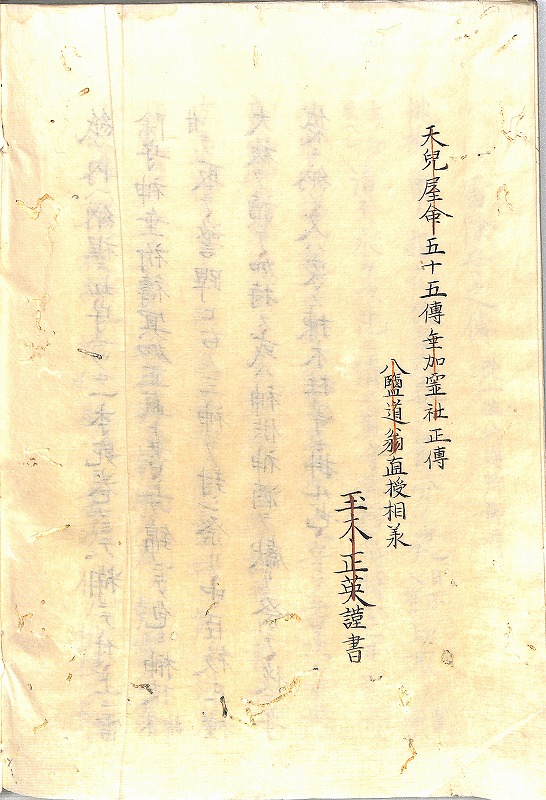 天兒屋命五十五傳垂加霊社正傳
八鹽道翁直授相承
玉木正英謹書